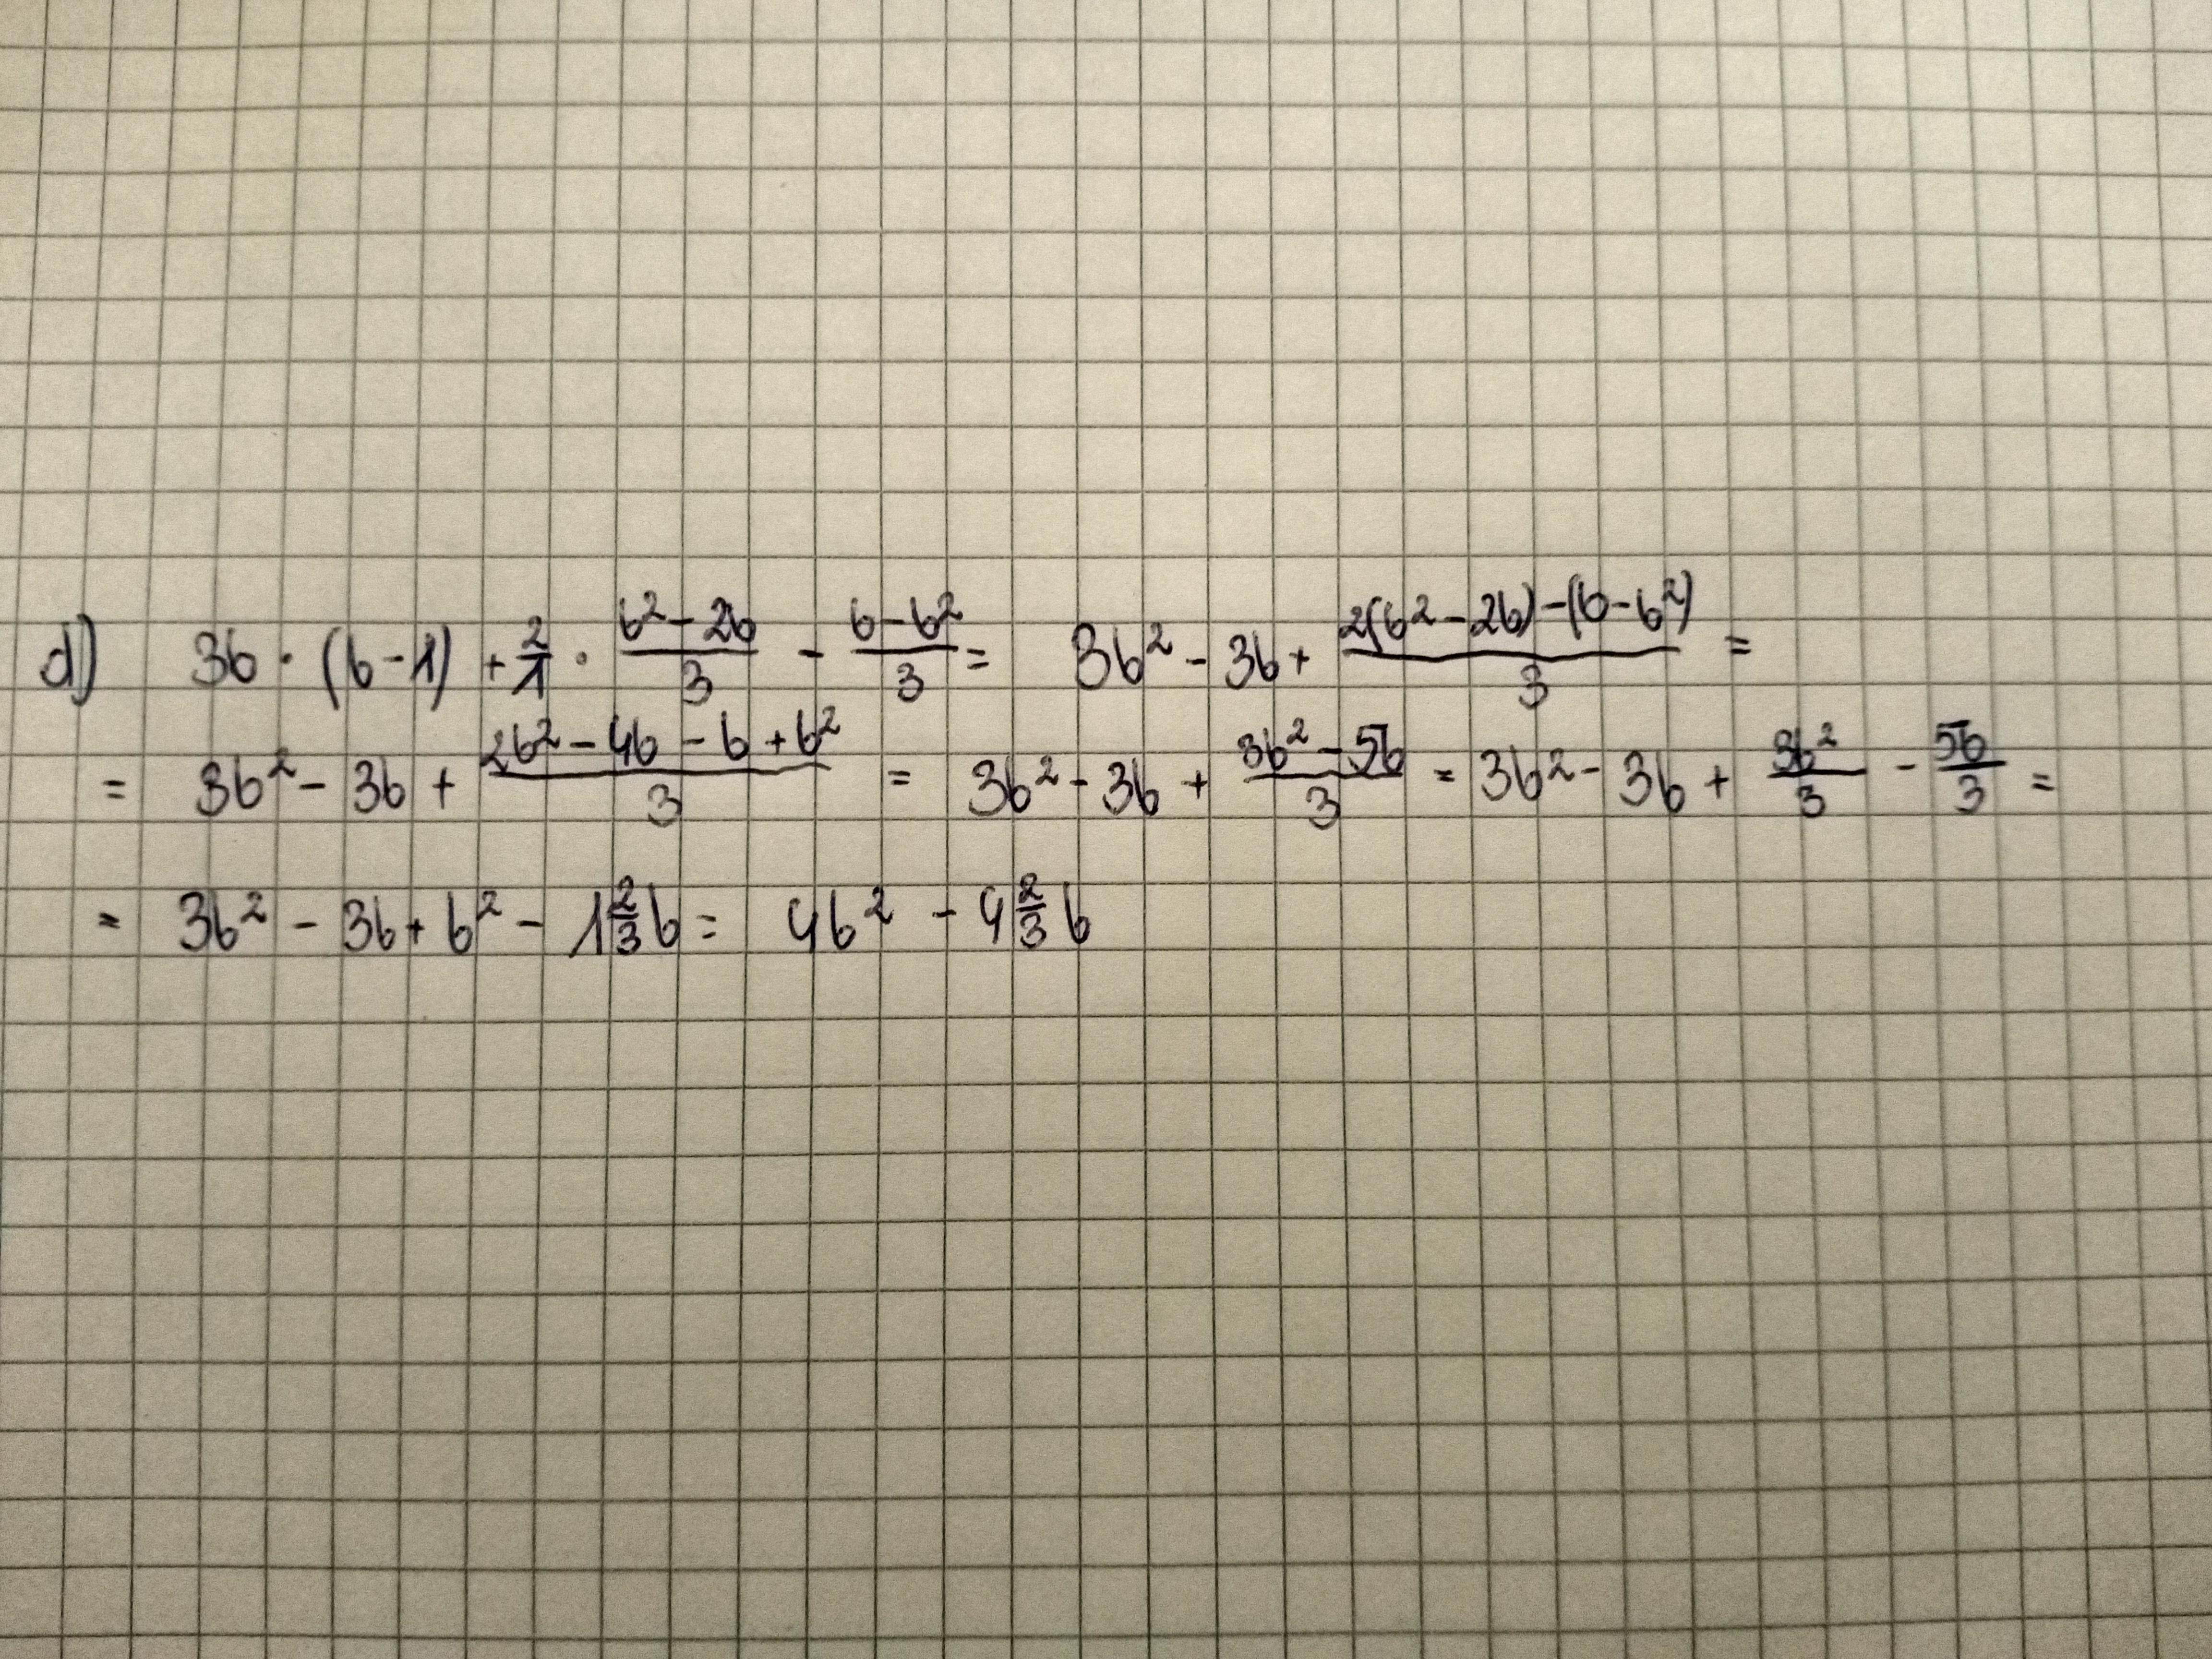 d) 3b · (b-1) + 2/1 · (b² - 2b)/3 - (b - b²)/3 = 3b² - 3b + (2(b² - 2b) - (b - b²))/3 =
= 3b² - 3b + (2b² - 4b - b + b²)/3 = 3b² - 3b + (3b² - 5b)/3 = 3b² - 3b + 3b²/3 - 5b/3 =
= 3b² - 3b + b² - 1 2/3 b = 4b² - 4 2/3 b